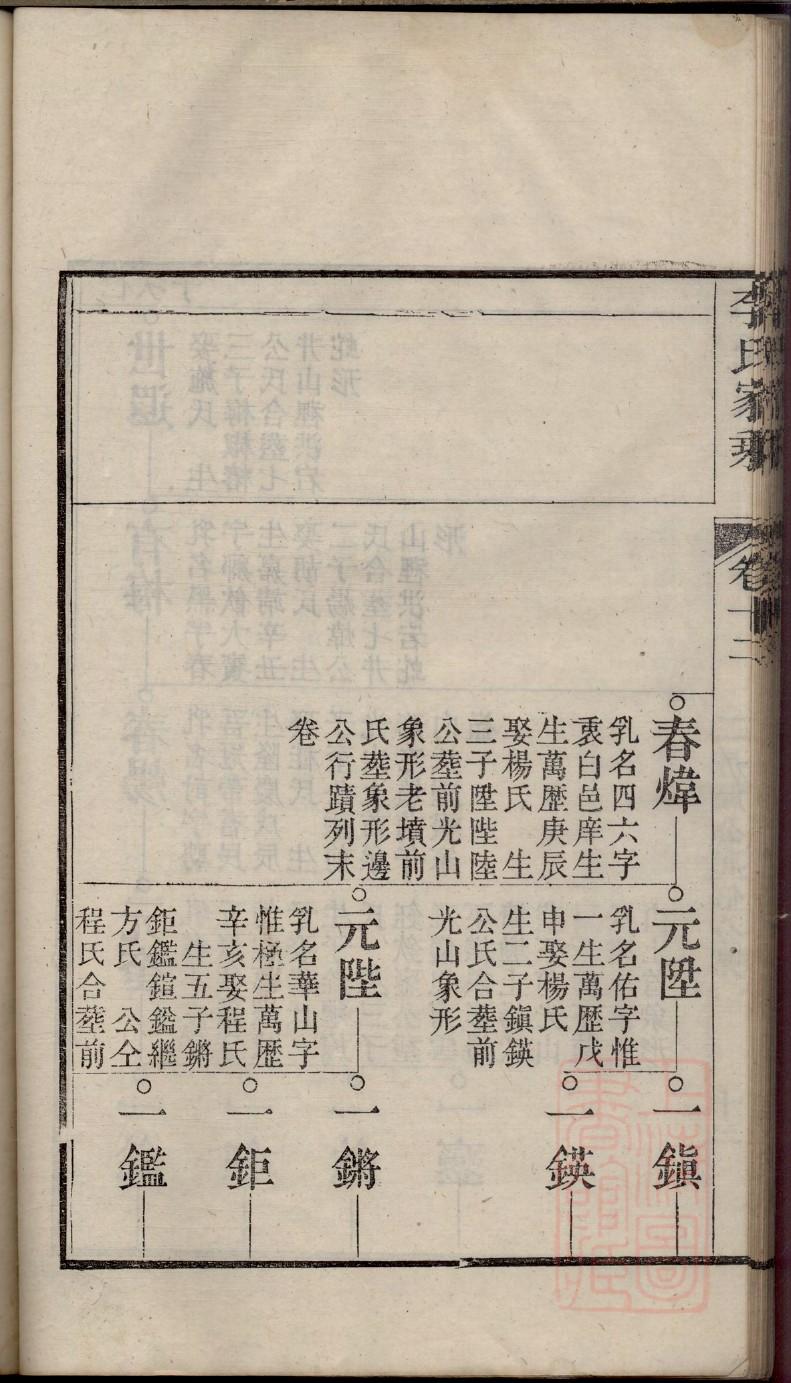 李氏家乘
卷十二
春煒
乳名四六字
裵白邑庠生
生萬歷庚辰
娶楊氏 生
三子陞陛陸
公塟前光山
象形老墳前
氏塟象形邊
公行蹟列末
卷
元陞
乳名佑字惟
一生萬歷戊
申娶楊氏
生二子鎭鍈
公氏合塟前
光山象形
元陛
乳名華山字
惟極生萬歷
辛亥娶程氏
生五子鏘
鉅鑑鍹鑑繼
方氏 公仝
程氏合塟前
一鎭
一鍈
一鏘
一鉅
一鑑